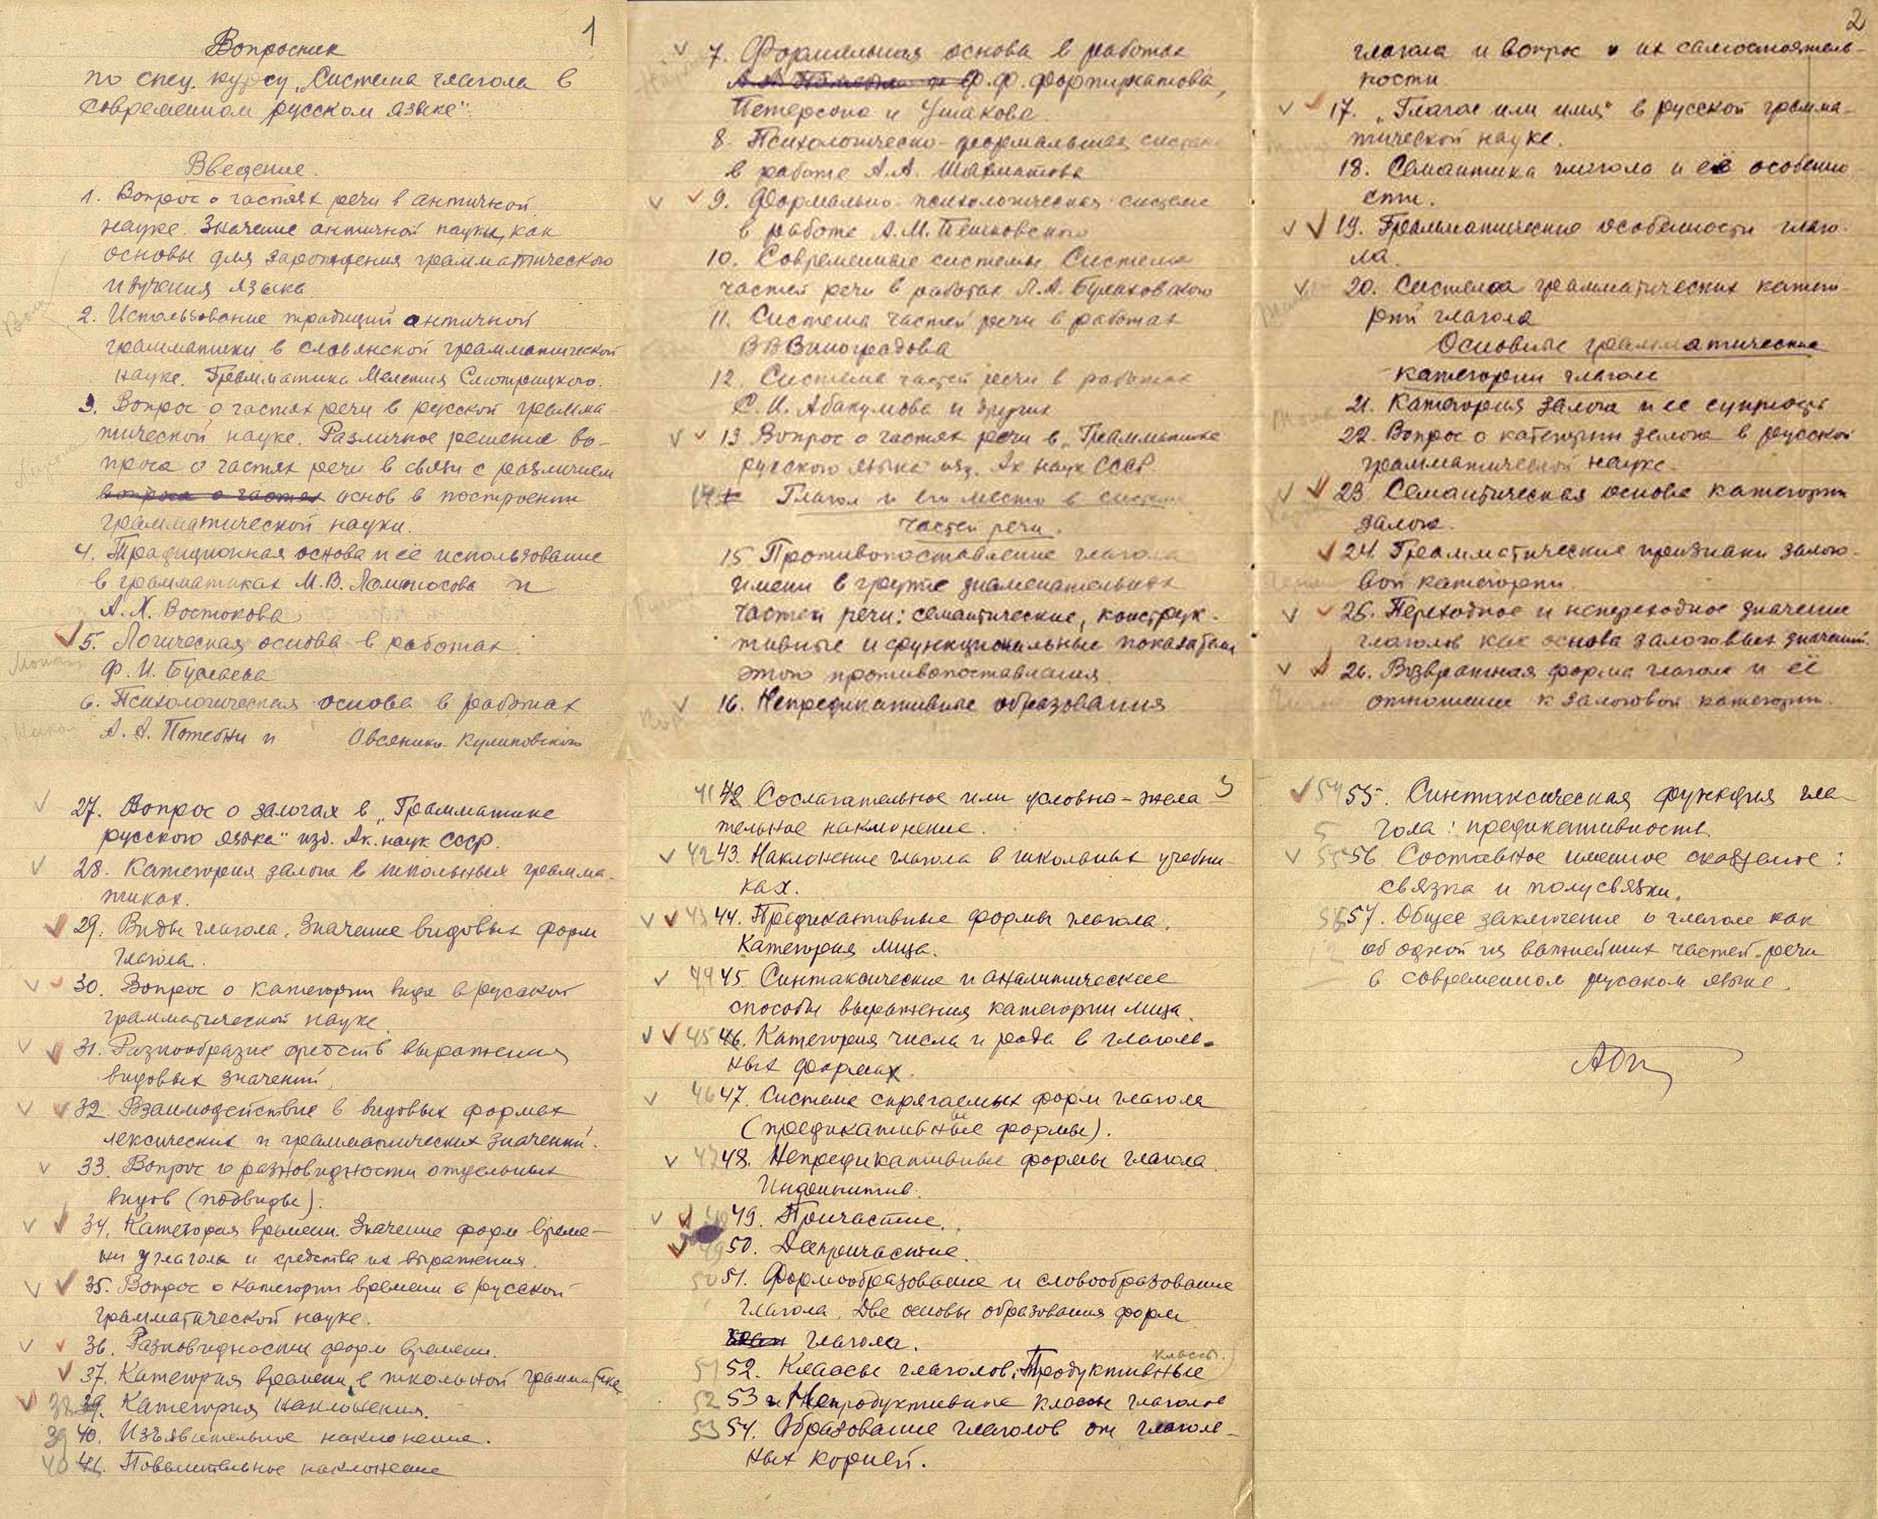 1
Вопросник
по спец. курсу „Система глагола в
современном русском языке":
Введение.
1. Вопрос о частях речи в античной
науке. Значение античной науки, как
основы для зарождения грамматического
изучения языка
2. Использование традиций античной
грамматики в славянской грамматической
науке. Грамматика Мелетия Смотрицкого.
3. Вопрос о частях речи в русской грамма
тической науке. Различное решение во-
проса о частях речи в связи с различием
вопроса о частях основ в построении
грамматической науки.
4. Традиционная основа и её использование
в грамматиках М.В. Ломоносова и
А.Х. Востокова
5. Логическая основа в работах
Ф.И. Буслаева
6. Психологическая основа в работах
А.А. Потебни и Овсянико-Куликовского
7. Формальная основа в работах
Ф.Ф. Фортунатова,
Петерсона и Ушакова.
8. Психологическо-формальная система
в работе А.А. Шахматова
9. Формально-психологическая система
в работе А.М. Пешковского
10. Современные системы Система
частей речи в работах Л.А. Булаховского
11. Система частей речи в работах
В В Виноградова
12. Система частей речи в работах
С.И. Абакумова и других
13 Вопрос о частях речи в „Грамматике
русского языка" изд. Ак наук СССР
14 Глагол и его место в системе
частей речи.
15 Противопоставление глагола
имени в группе знаменательных
частей речи: семантические, конструк-
тивные и функциональные показатели
этого противопоставления.
16. Непредикативные образования
2
глагола и вопрос о их самостоятель-
ности
17. „Глагол или имя" в русской грамма-
тической науке.
18. Семантика глагола и её особенно-
сти.
19. Грамматические особенности глаго-
ла.
20. Система грамматических катего-
рий глагола
Основные грамматические
категории глагола
21. Категория залога и ее сущность
22. Вопрос о категории залога в русской
грамматической науке.
23. Семантическая основа категории
залога.
24. Грамматические признаки залого-
вой категории.
25. Переходное и непереходное значение
глаголов как основа залоговых значений.
26. Возвратная форма глагола и её
отношение к залоговой категории.
27. Вопрос о залогах в „Грамматике
русского языка" изд. Ак. наук СССР.
28. Категория залога в школьных грамма-
тиках.
29. Виды глагола. Значение видовых форм
глагола.
30. Вопрос о категории вида в русской
грамматической науке.
31. Разнообразие средств выражения
видовых значений.
32. Взаимодействие в видовых формах
лексических и грамматических значений.
33. Вопрос о разновидности отдельных
видов (подвиды).
34. Категория времени. Значение форм време-
ни у глагола и средства их выражения.
35. Вопрос о категории времени в русской
грамматической науке.
36. Разновидности форм времени.
37. Категория времени в школьной грамматике
38 39. Категория наклонения.
39 40. Изъявительное наклонение.
40 41. Повелительное наклонение
3
41 42 Сослагательное или условно-жела
тельное наклонение.
42 43. Наклонение глагола в школьных учебни-
ках.
43 44. Предикативные формы глагола.
Категория лица.
44 45. Синтаксические и аналитические
способы выражения категории лица.
45 46. Категория числа и рода в глаголь-
ных формах.
46 47. Система спрягаемых форм глагола
(предикативные формы).
47 48. Непредикативные формы глагола.
Инфинитив.
49. Причастие.
49 50. Деепричастие.
50 51. Формообразование и словообразование
глагола. Две основы образования форм
глагола.
51 52. Классы глаголов. Продуктивные классы.
52 53 и Непродуктивные классы глаголов
53 54. Образование глаголов от глаголь-
ных корней.
54 55. Синтаксическая функция гла
гола: предикативность.
55 56 Составное именное сказуемое:
связка и полусвязки.
56 57. Общее заключение о глаголе как
об одной из важнейших частей речи
в современном русском языке.